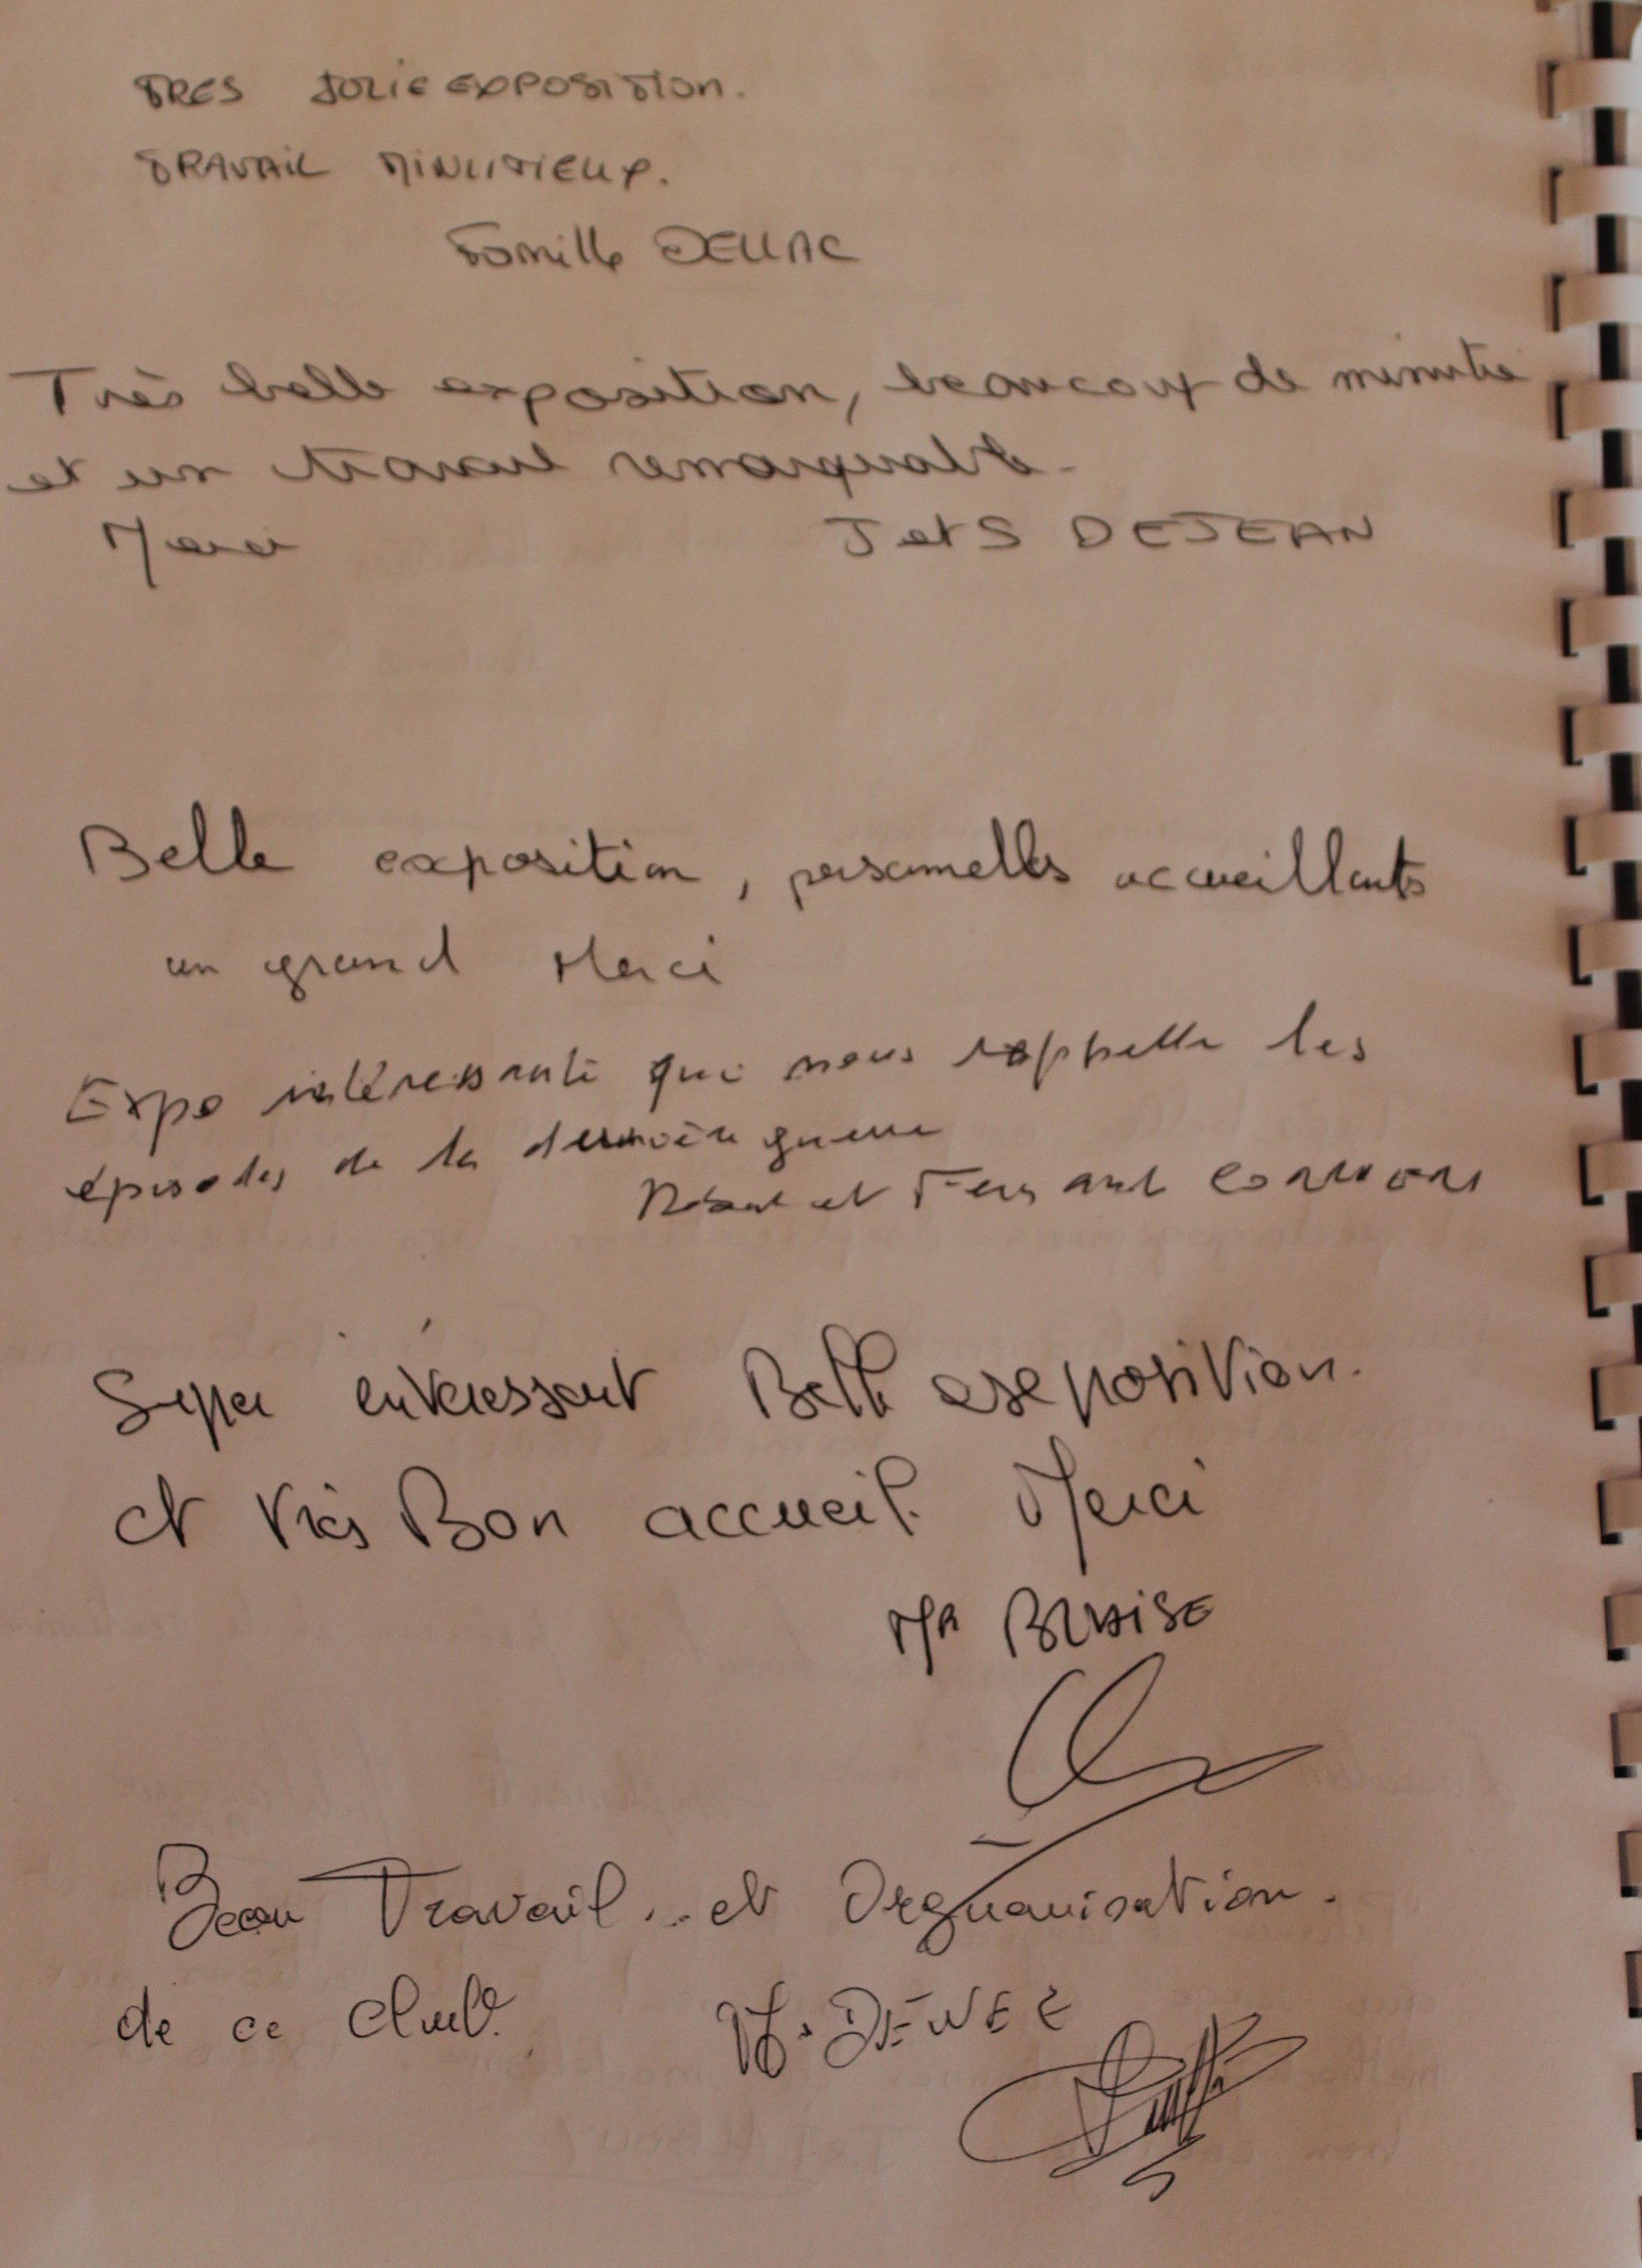 TRES JOLIE EXPOSITION.
TRAVAIL MINUTIEUX.
Famille DELLAC
Très belle exposition, beaucoup de minutie
et un travail remarquable.
Merci J et S DEJEAN
Belle exposition, personnelles accueillants
un grand Merci
Expo intéressante qui nous rappelle les
épisodes de la dernière guerre
et
Super intéressant Belle exseposition.
et très Bon accueil. Merci
Mr BLAISE
Beau Travail... et Orguanisation.
de ce club. M. DENEE